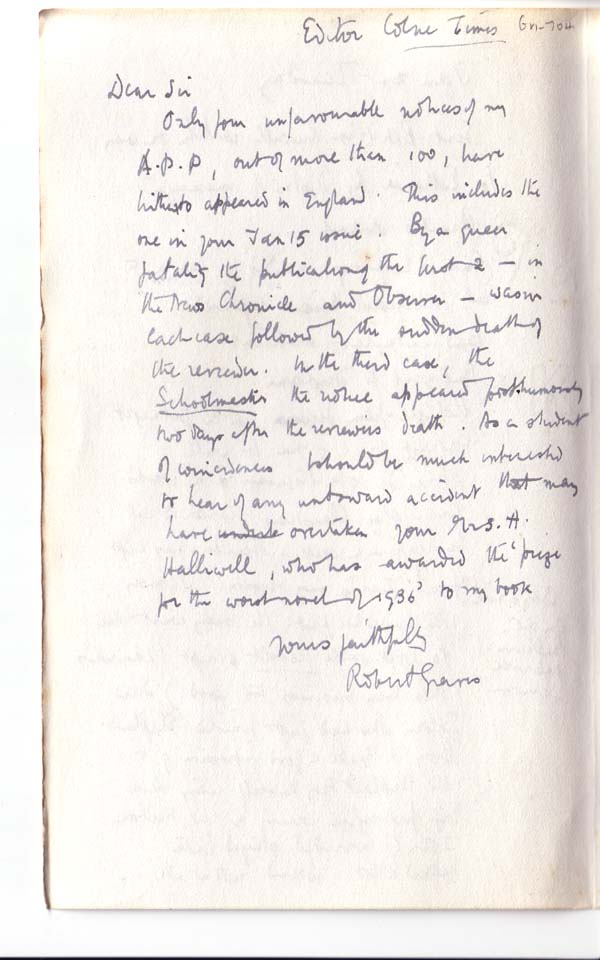 Editor Colne Times GM-704
Dear Sir
Only four unfavourable notices of my
A.P.P, out of more than 100, have
hitherto appeared in England. This includes the
one in your Jan 15 issue. By a queer
fatality the publication of the first 2 – in
the News Chronicle and Observer – was in
each case followed by the sudden death of
the reviewer. In the third case, the
Schoolmaster the notice appeared posthumously
two days after the reviewers death. As a student
of coincidences I should be much interested
to hear of any untoward accident that may
have overtaken your Mrs. H.
Halliwell, who has awarded the 'prize
for the worst novel of 1936' to my book
Yours faithfully
Robert Graves